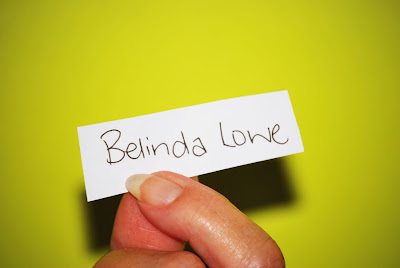 Belinda Lowe